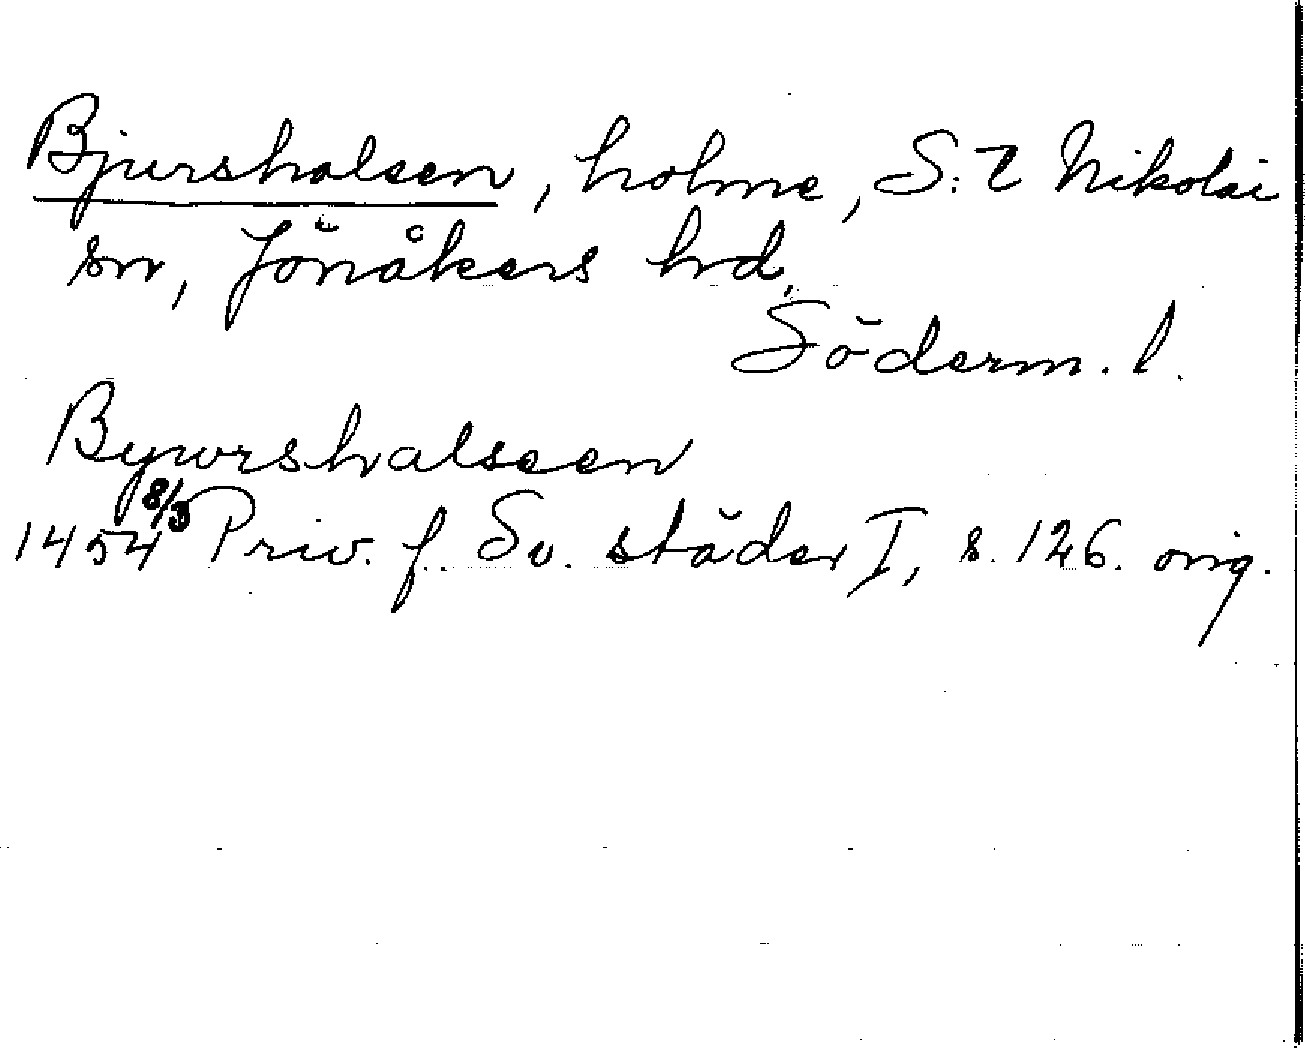 Bjurshalsen, holme, S:t Nikolai
sn, Jönåkers hd,
Söderm. l.
Bywrshalseen
1454 8/3 Priv. f. Sv. städer I, s. 126. orig.